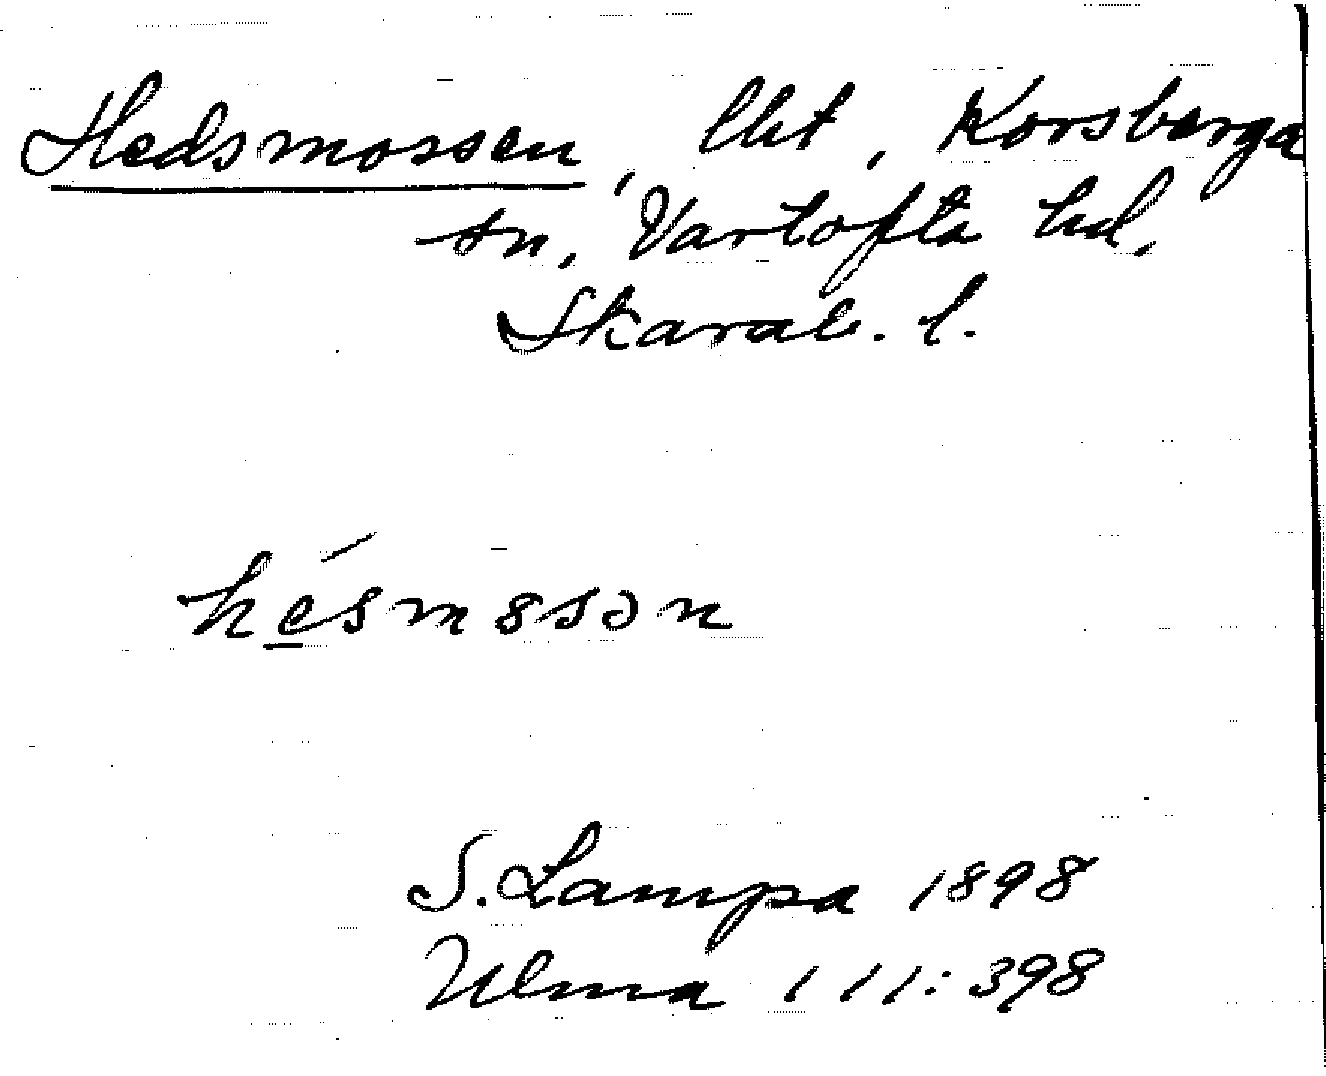 Hedsmossen, lht, Korsberga
sn, Vartofta hd,
Skarab. l.
hésm8sən
S. Lampa 1898
Ulma 111:398